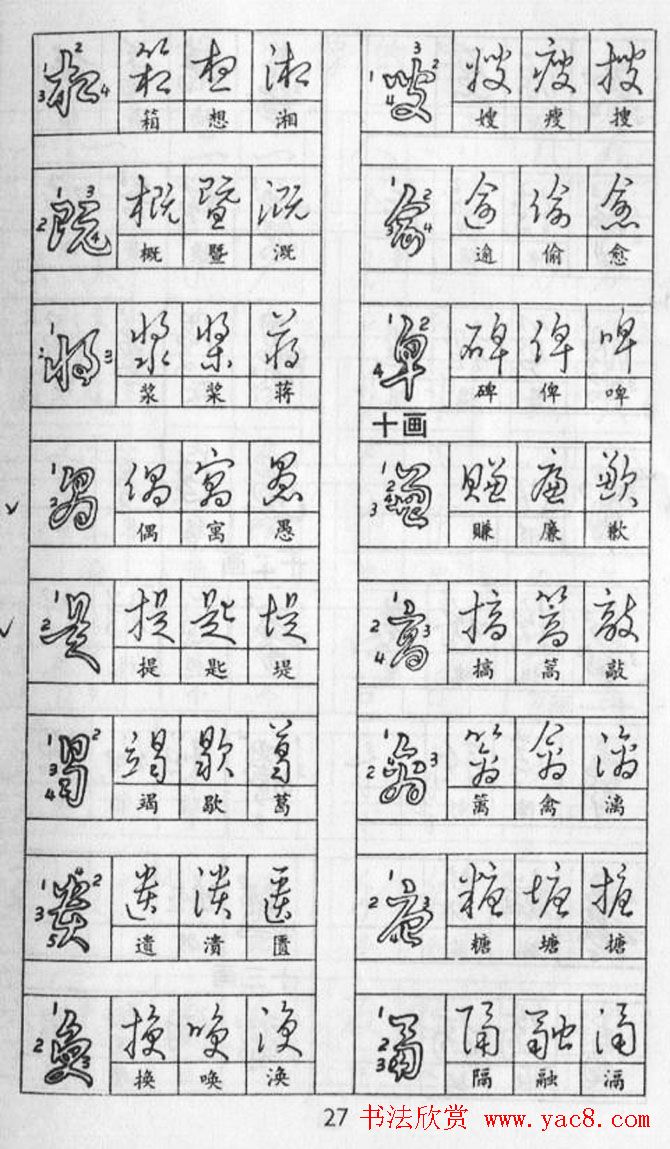 箱 想 湘
概 暨 溉
浆 桨 蒋
偶 寓 愚
提 匙 堤
竭 歇 葛
遗 溃 匮
换 唤 涣
嫂 瘦 搜
逾 偷 愈
碑 俾 啤
十画
赚 廉 歉
搞 篙 敲
篱 禽 漓
糖 塘 搪
隔 融 滆
27
书法欣赏 www.yac8.com